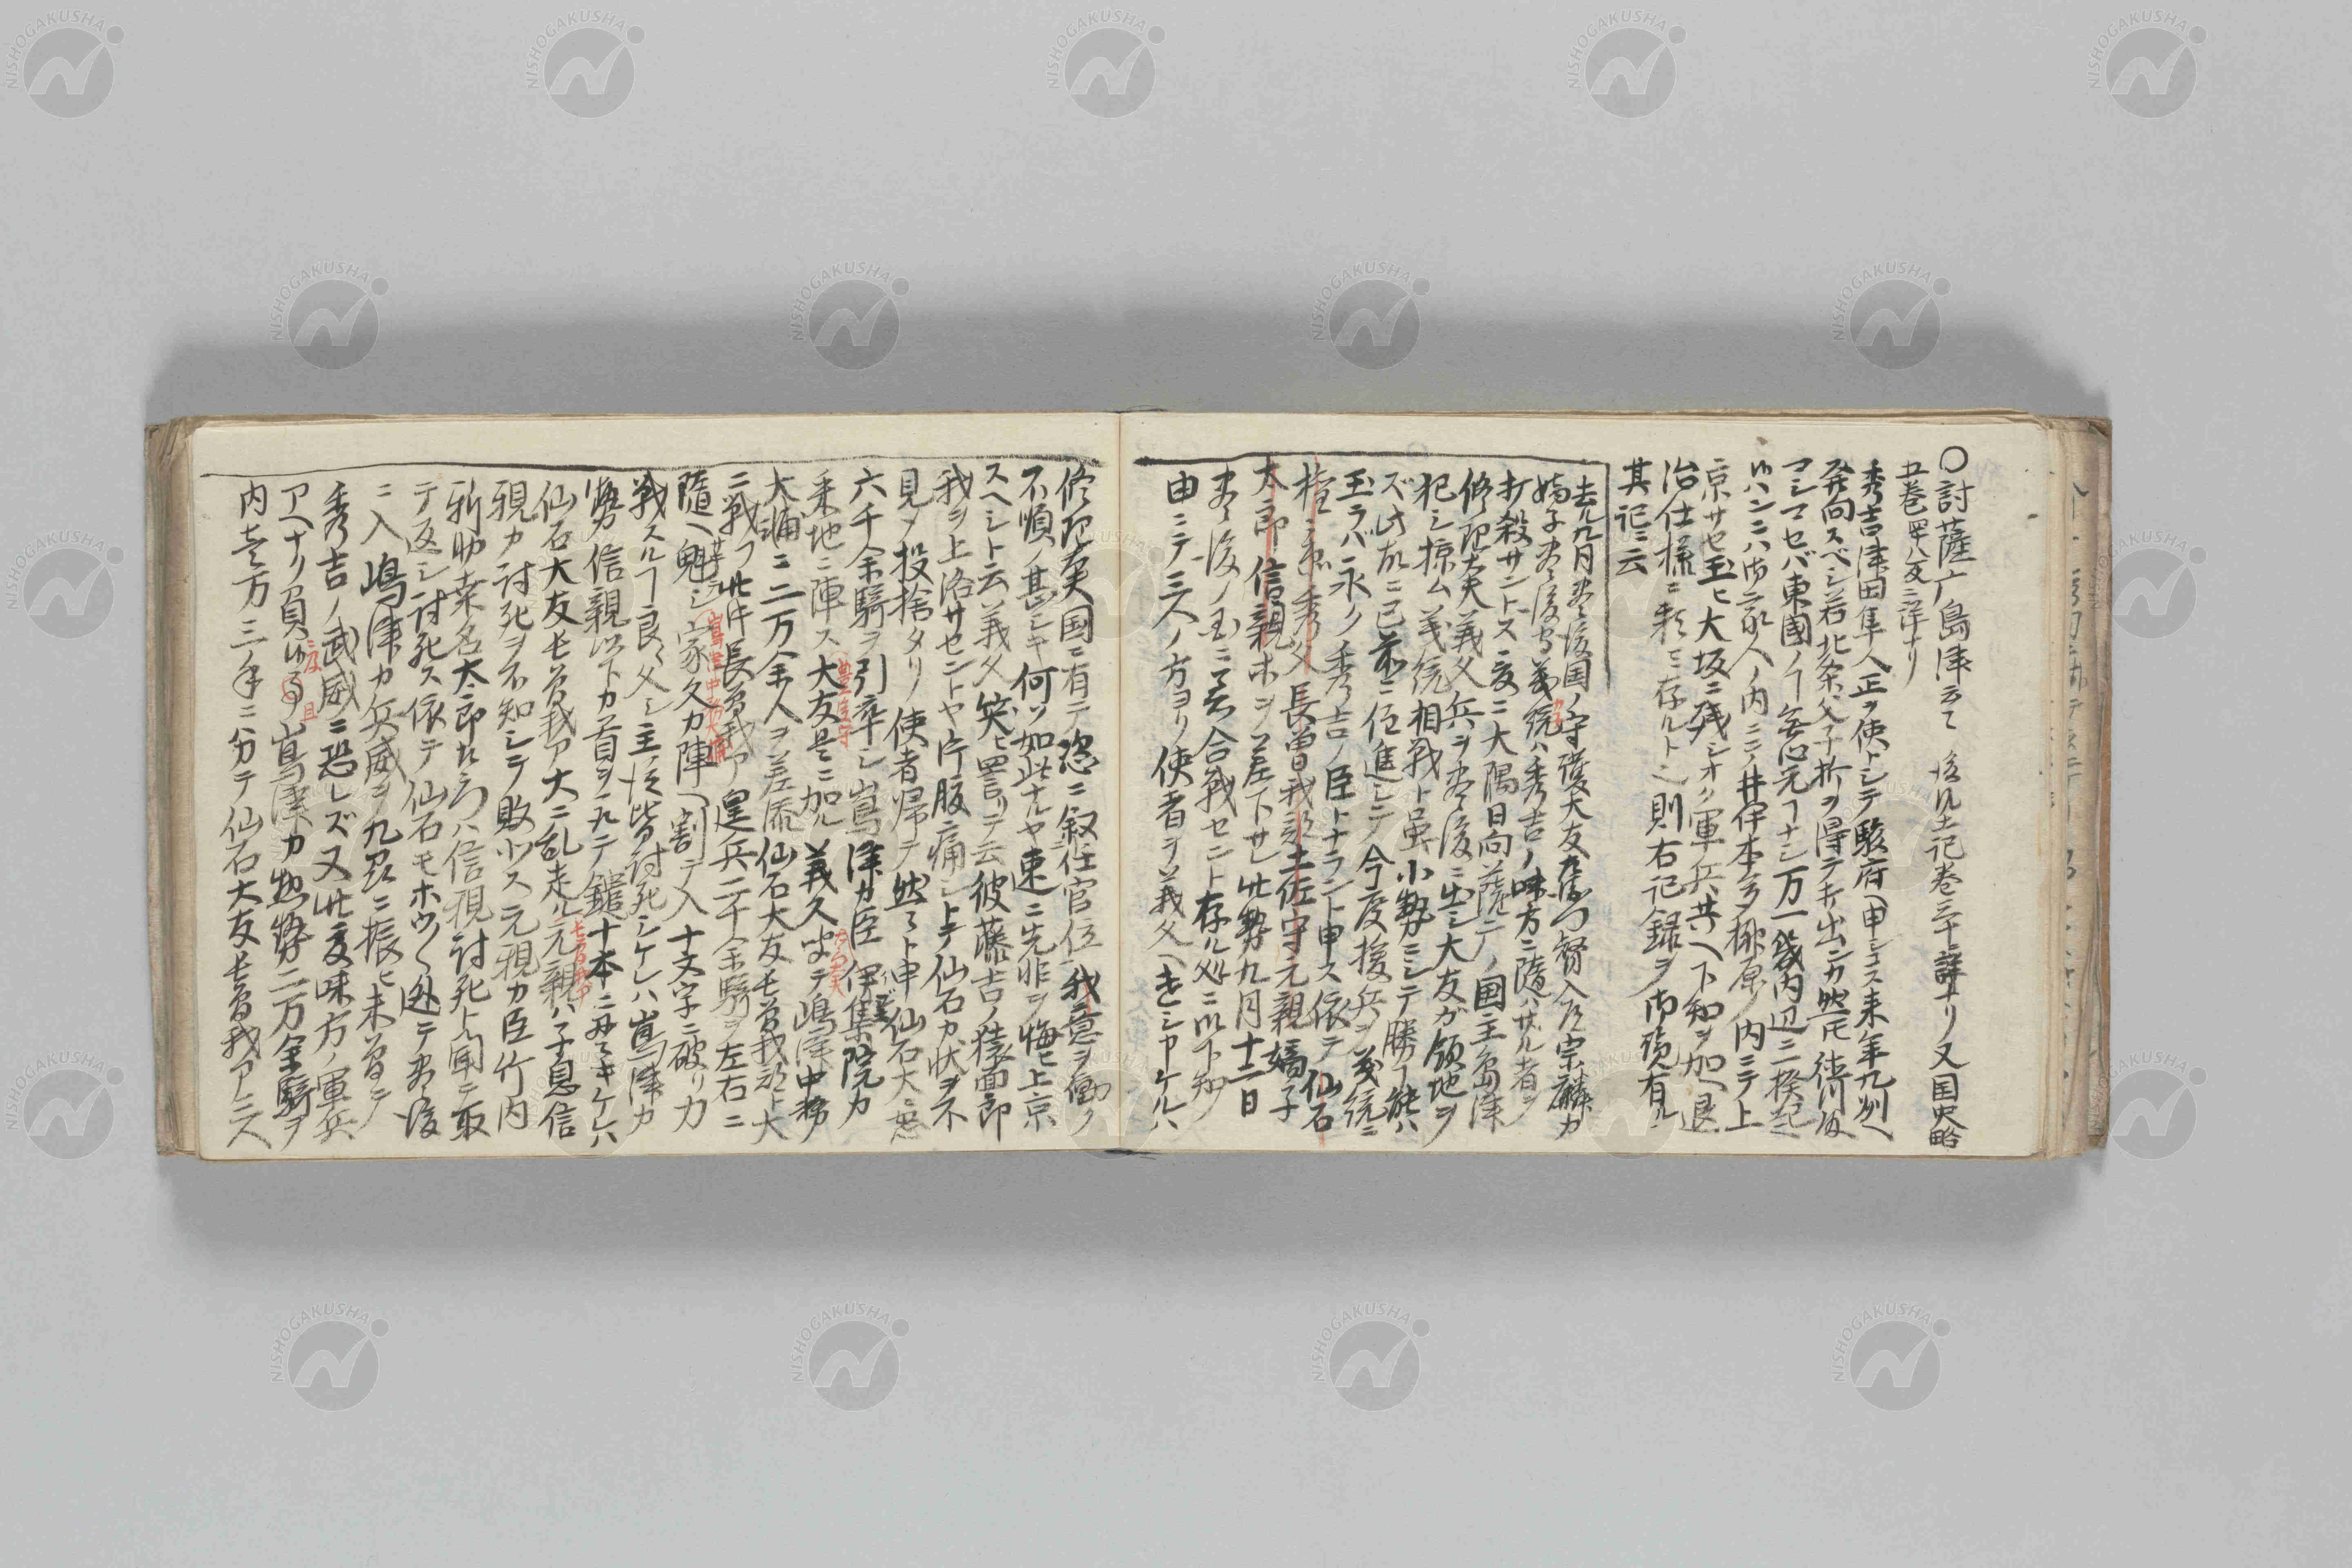 〇討薩ノ島津云々 後風土記巻三十詳ナリ又国史略
五巻四十八丁ニ詳ナリ
秀吉津田隼人正ヲ使トシテ駿府ヘ申シコス来年九州ヘ
発向スベシ若北条父子折ヲ得テキ出ンカ然トモ徳川殿
マシマセバ東国ノヿ無心元ヿナシ万一畿内辺ニ一揆起
ハンニハ御家人ノ内ニテノ井伊本多榊原ノ内ニテ上
京サセ玉ヒ大坂ニ残シオク軍兵共ヘ下知ヲ加ヘ退
治仕様ニ頼ミ存ルト也則右記録ヲ御預有ル
其記ニ云
去ル九月豊後国ノ守護大友左衛門督入道宗麟カ
嫡子豊後守義統ハ秀吉ノ味方ニ隨ハザル者ヲ
打殺サントス爰ニ大隅日向薩广ノ国主島津
修理大夫義久兵ヲ豊後ニ出シ大友ガ領地ヲ
犯シ掠ム義統相戦ト雖小勢ニシテ勝ヿ能ハ
ズ此故ニ已前ニ注進シテ今度援兵ヲ義統ニ
玉ラバ永ク秀吉ノ臣トナラント申ス依テ仙石
権兵衛秀久長曽我部土佐守元親嫡子
太郎信親ホヲ差下サレ此勢九月十二日
豊後ノ国ニ着合戦セント存ル処ニ以下知
由ニテ三人ノ方ヨリ使者ヲ義久ヘ遣シ申ケルハ
修理大夫国ニ有テ恣ニ叙任官位我意ヲ働ク
不順ノ甚シキ何ソ如此ナルヤ速ニ先非ヲ悔ヒ上京
スヘシト云義久笑ヒ詈リテ云彼藤吉ノ猿面郎
我ヲ上洛サセントヤ片腹痛シトテ仙石カ状ヲ不
見メ投捨タリ使者帰テ然々ト申仙石大ニ怒
六千余騎ヲ引率シ嶌津カ臣伊集院カ
乗地ニ陣ス大友是ニ加ル義久聞テ嶋津中務
大輔ニ二万余人ヲ差添仙石大友長曽我部ト大
ニ戦フ此時長曽我ア逞兵二千余騎ヲ左右ニ
隨ヘ魁シ家久カ陣ヘ割テ入十文字ニ破リ力
戦スルヿ良久シ主従皆討死シケレハ嶌津カ
勢信親以下カ首ヲ取テ鎚十本ニ貫キケレハ
仙石大友長曽我ア大ニ乱走ル元親ハ子息信
親カ討死ヲ不知シテ敗北ス元親カ臣竹内
弥助桑名太郎左衛門ハ信親討死ト聞テ取
テ返シ討死ス依テ仙石モホウ〳〵逃テ豊後
ニ入嶋津カ兵威ヲ九州ニ振ヒ未曽テ
秀吉ノ武威ニ恐レズ又此度味方ノ軍兵
嶌津カ惣勢二万余騎ヲ
内壱万三手ニ分テ仙石大友長曽我ア三人